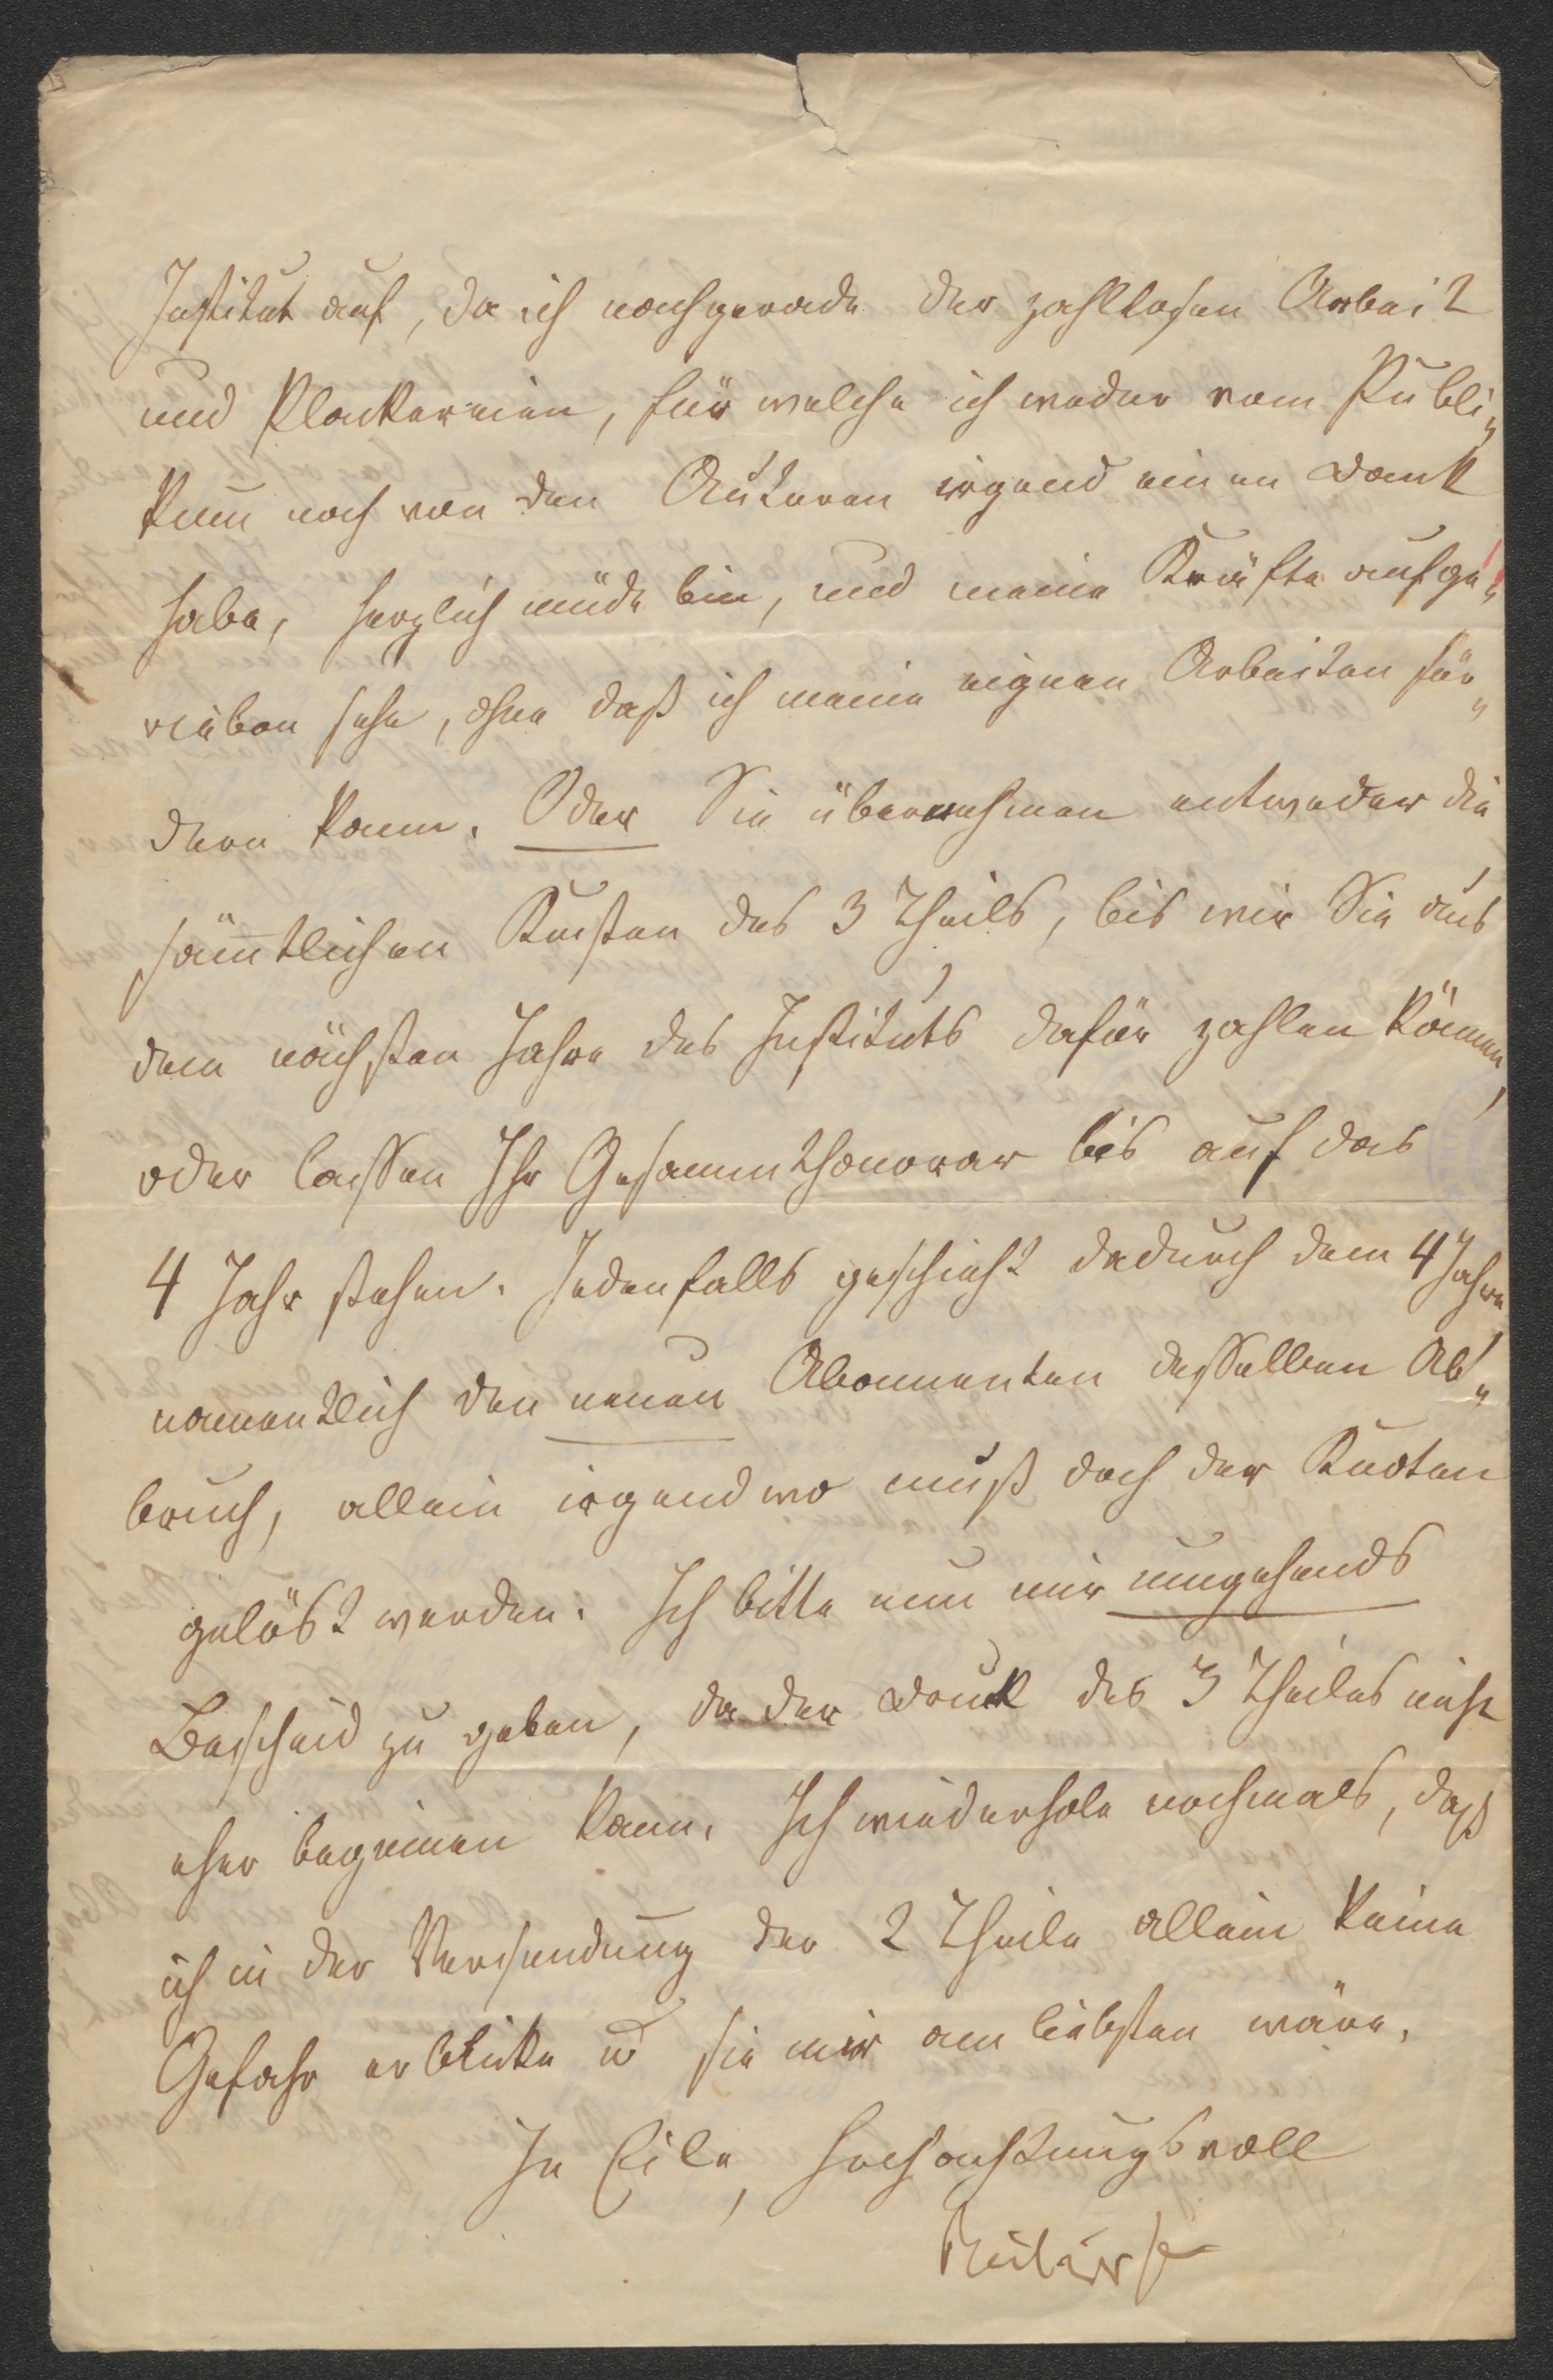 Institut auf, da ich nachgerade der zahllosen Arbeit
und Plackereien, für welche ich weder vom Publi„
kum noch von den Autoren irgend einen Dank
habe, herzlich müde bin, und meine Kräfte aufge„
rieben sehe, ohne daß ich meine eignen Arbeiten för„
dern kann. Oder Sie übernehmen entweder die
sämtlichen Kosten des 3 Theils, bis wir Sie aus
dem nächsten Jahre des Instituts dafür zahlen können,
oder lassen Ihr Gesammthonorar bis auf das
4 Jahr stehen. Jedenfalls geschieht dadurch dem 4 Jahre
namentlich den neuen Abonnenten desselben Ab„
bruch, allein irgendwo muß doch der Knoten
gelöst werden. Ich bitte nun mir umgehends
Bescheid zu geben, da der Druck des 3 Theiles nicht
eher beginnen kann. Ich wiederhole nochmals, daß
ich in der Versendung der 2 Theile allein keine
Gefahr erblicke u sie mir am liebsten wäre.
In Eile, hochachtungsvoll